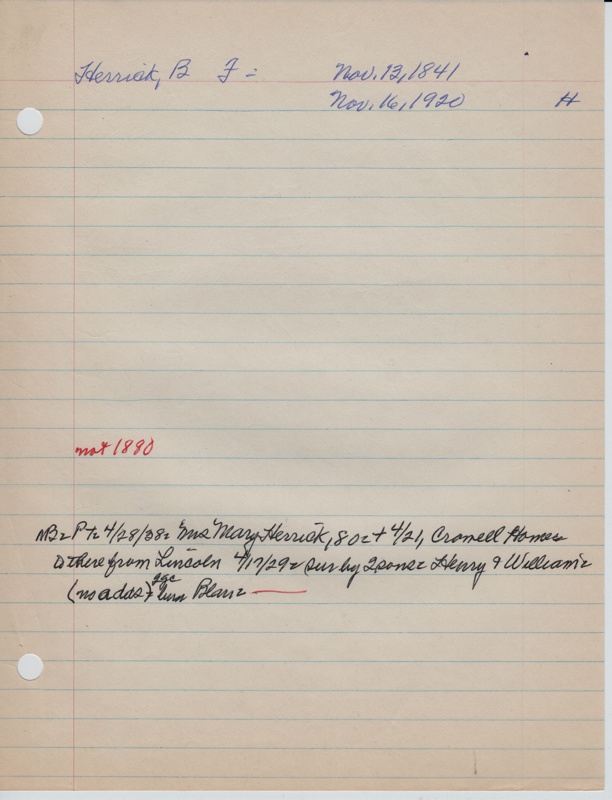 Herrick, B F =
Nov. 13, 1841
Nov. 16, 1920 H
not 1880
NB= Pt= 4/28/38= "Mrs Mary Herrick, 80=+ 4/21, Cromell Home=
there from Lincoln 4/17/29= sur by 2 sons= Henry & William"=
(no adds + 2gc Blair=